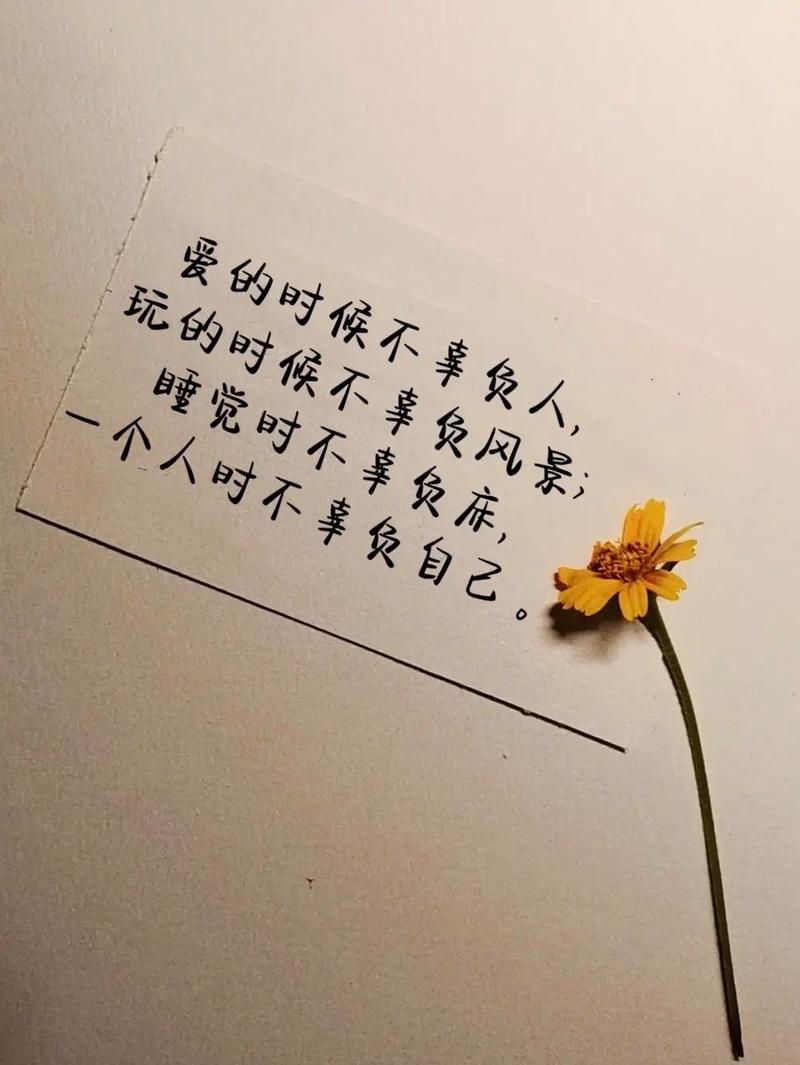 爱的时候不辜负人,
玩的时候不辜负风景;
睡觉时不辜负床,
一个人时不辜负自己。